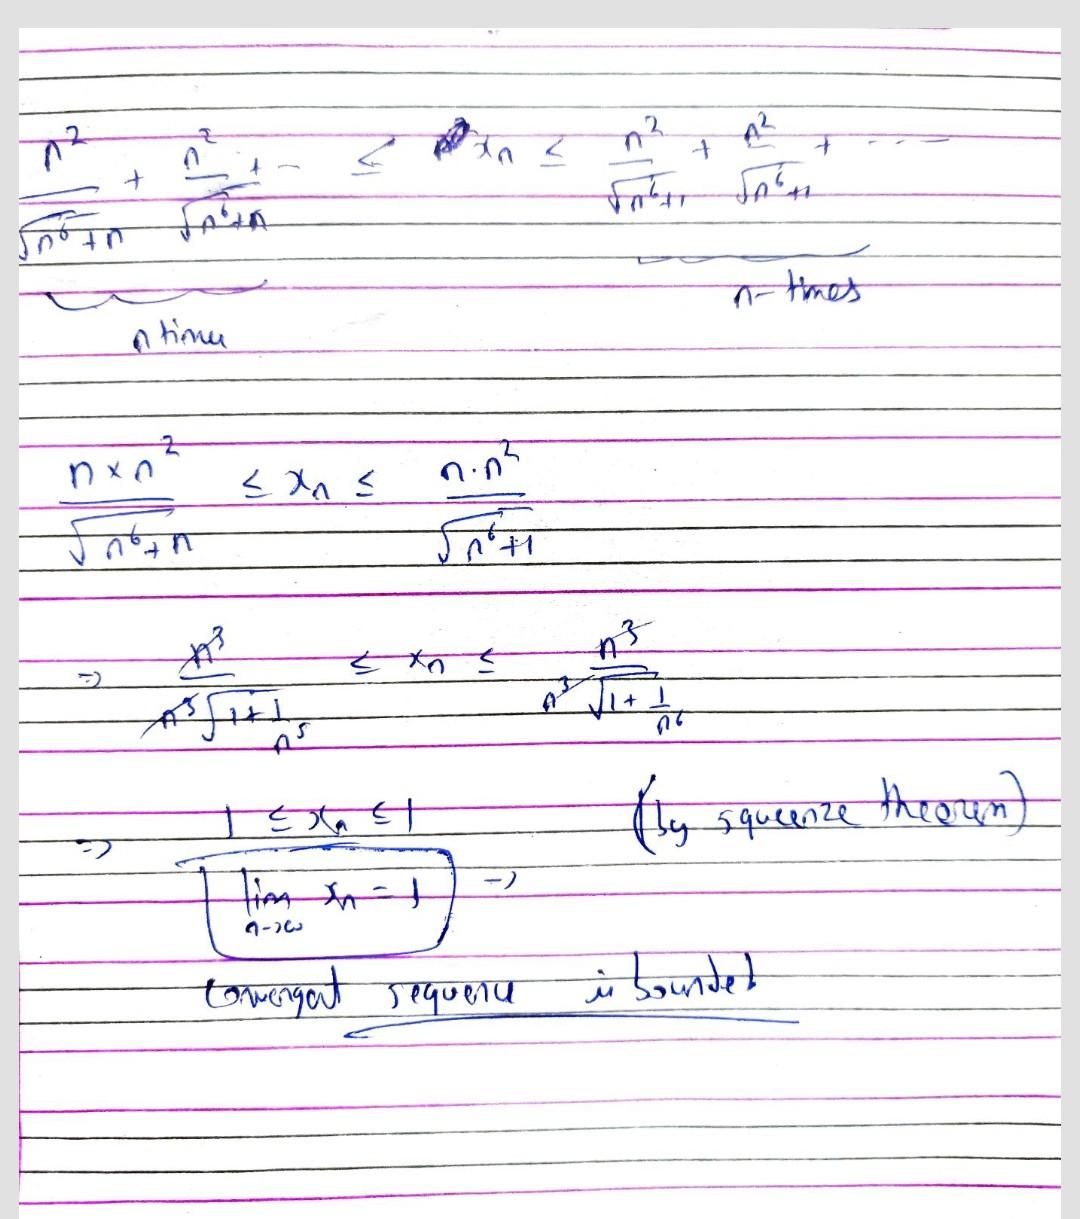 n²/√(n⁶+n) + n²/√(n⁶+n) + -- ≤ xₙ ≤ n²/√(n⁶+1) + n²/√(n⁶+1) + ----
n times n-times
n×n²/√(n⁶+n) ≤ xₙ ≤ n·n²/√(n⁶+1)
⇒ n³/n³√(1+1/n⁵) ≤ xₙ ≤ n³/n³√(1+1/n⁶)
⇒ 1 ≤ xₙ ≤ 1 (by squeenze theorem)
lim n→∞ xₙ = 1 →
convergent sequence is bounded